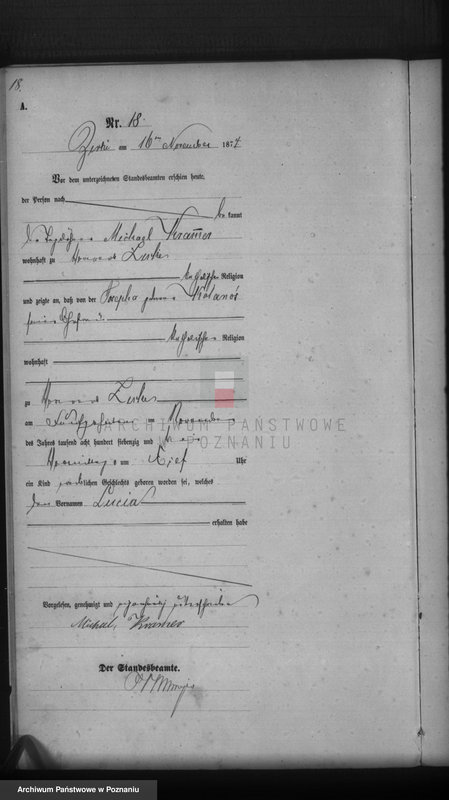 18.
A.
Nr. 18.
Zirke am 16ten November 1874
Vor dem unterzeichneten Standesbeamten erschien heute,
der Person nach
be kannt
der Tagelöhner Michael Kramer
wohnhaft zu Zirke
katholischer Religion
und zeigte an, daß von der Josepha geborene
seiner Ehefrau
katholischer Religion
wohnhaft
zu Zirke
am November
des Jahres tausend acht hundert siebenzig und vier
Vormittags um Uhr
ein Kind weiblichen Geschlechts geboren worden sei, welches
den Vornamen Lucia
erhalten habe
ARCHIWUM PAŃSTWOWE
W POZNANIU
Vorgelesen, genehmigt und unterschrieben
Michael Kramer
Der Standesbeamte.
Archiwum Państwowe w Poznaniu